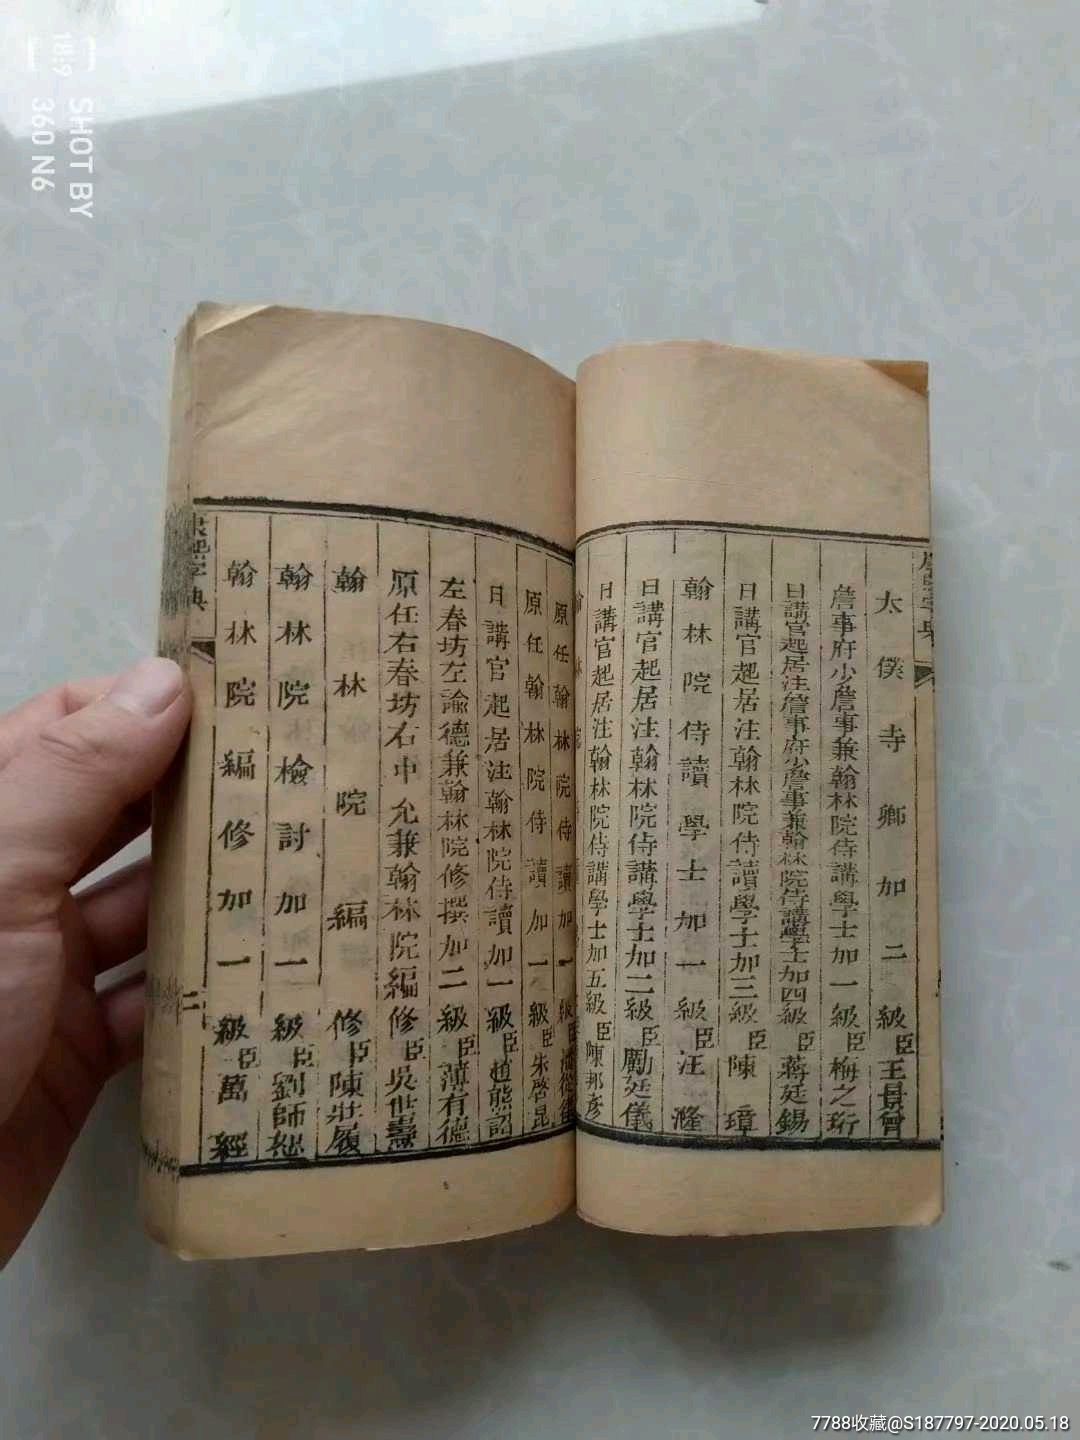 太僕寺卿加二級臣王景曾
詹事府少詹事兼翰林院侍講學士加一級臣梅之珩
日講官起居注詹事府少詹事兼翰林院侍講學士加四級臣蔣廷錫
日講官起居注翰林院侍讀學士加三級臣陳璋
翰林院侍讀學士加一級臣汪漋
日講官起居注翰林院侍講學士加二級臣勵廷儀
日講官起居注翰林院侍講學士加五級臣陳邦彥
原任翰林院侍讀加一級臣潘從律
原任翰林院侍讀加一級臣朱啓昆
日講官起居注翰林院侍讀加一級臣趙熊詔
左春坊左諭德兼翰林院修撰加二級臣薄有德
原任右春坊右中允兼翰林院編修臣吳世燾
翰林院編修臣陳壯履
翰林院檢討加一級臣劉師恕
翰林院編修加一級臣萬經
康熙字典
二
SHOT BY
360 N6
18:9
7788收藏@S187797-2020.05.18